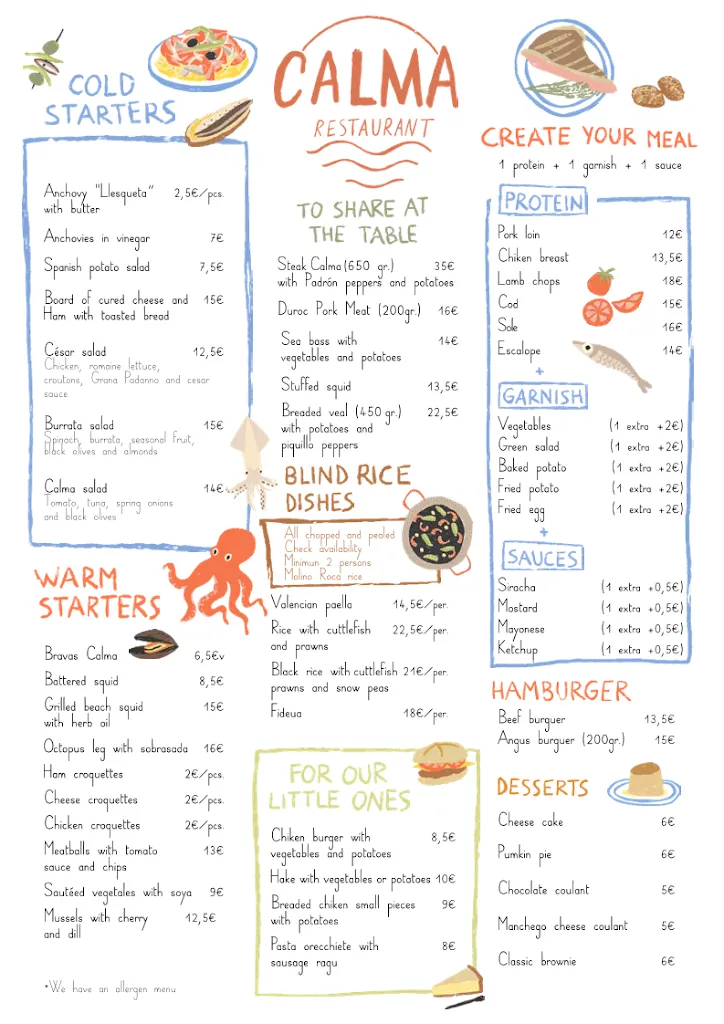 COLD
STARTERS
Anchovy "Llesqueta" 2,5€/pcs.
with butter
Anchovies in vinegar 7€
Spanish potato salad 7,5€
Board of cured cheese and 15€
Ham with toasted bread
César salad 12,5€
Chicken, romaine lettuce,
croutons, Grana Padanno and cesar
sauce
Burrata salad 15€
Spinach, burrata, seasonal fruit,
black olives and almonds
Calma salad 14€
Tomato, tuna, spring onions
and black olives
WARM
STARTERS
Bravas Calma 6,5€v
Battered squid 8,5€
Grilled beach squid 15€
with herb oil
Octopus leg with sobrasada 16€
Ham croquettes 2€/pcs.
Cheese croquettes 2€/pcs.
Chicken croquettes 2€/pcs.
Meatballs with tomato 13€
sauce and chips
Sautéed vegetales with soya 9€
Mussels with cherry 12,5€
and dill
*We have an allergen menu
CALMA
RESTAURANT
TO SHARE AT
THE TABLE
Steak Calma (650 gr.) 35€
with Padrón peppers and potatoes
Duroc Pork Meat (200gr.) 16€
Sea bass with 14€
vegetables and potatoes
Stuffed squid 13,5€
Breaded veal (450 gr.) 22,5€
with potatoes and
piquillo peppers
BLIND RICE
DISHES
All chopped and pealed
Check availability
Minimun 2 persons
Molino Roca rice
Valencian paella 14,5€/per.
Rice with cuttlefish 22,5€/per.
and prawns
Black rice with cuttlefish 21€/per.
prawns and snow peas
Fideua 18€/per.
FOR OUR
LITTLE ONES
Chiken burger with 8,5€
vegetables and potatoes
Hake with vegetables or potatoes 10€
Breaded chiken small pieces 9€
with potatoes
Pasta orecchiete with 8€
sausage ragu
CREATE YOUR MEAL
1 protein + 1 garnish + 1 sauce
PROTEIN
Pork loin 12€
Chiken breast 13,5€
Lamb chops 18€
Cod 15€
Sole 16€
Escalope 14€
+
GARNISH
Vegetables (1 extra +2€)
Green salad (1 extra +2€)
Baked potato (1 extra +2€)
Fried potato (1 extra +2€)
Fried egg (1 extra +2€)
+
SAUCES
Siracha (1 extra +0,5€)
Mostard (1 extra +0,5€)
Mayonese (1 extra +0,5€)
Ketchup (1 extra +0,5€)
HAMBURGER
Beef burguer 13,5€
Angus burguer (200gr.) 15€
DESSERTS
Cheese cake 6€
Pumkin pie 6€
Chocolate coulant 5€
Manchego cheese coulant 5€
Classic brownie 6€